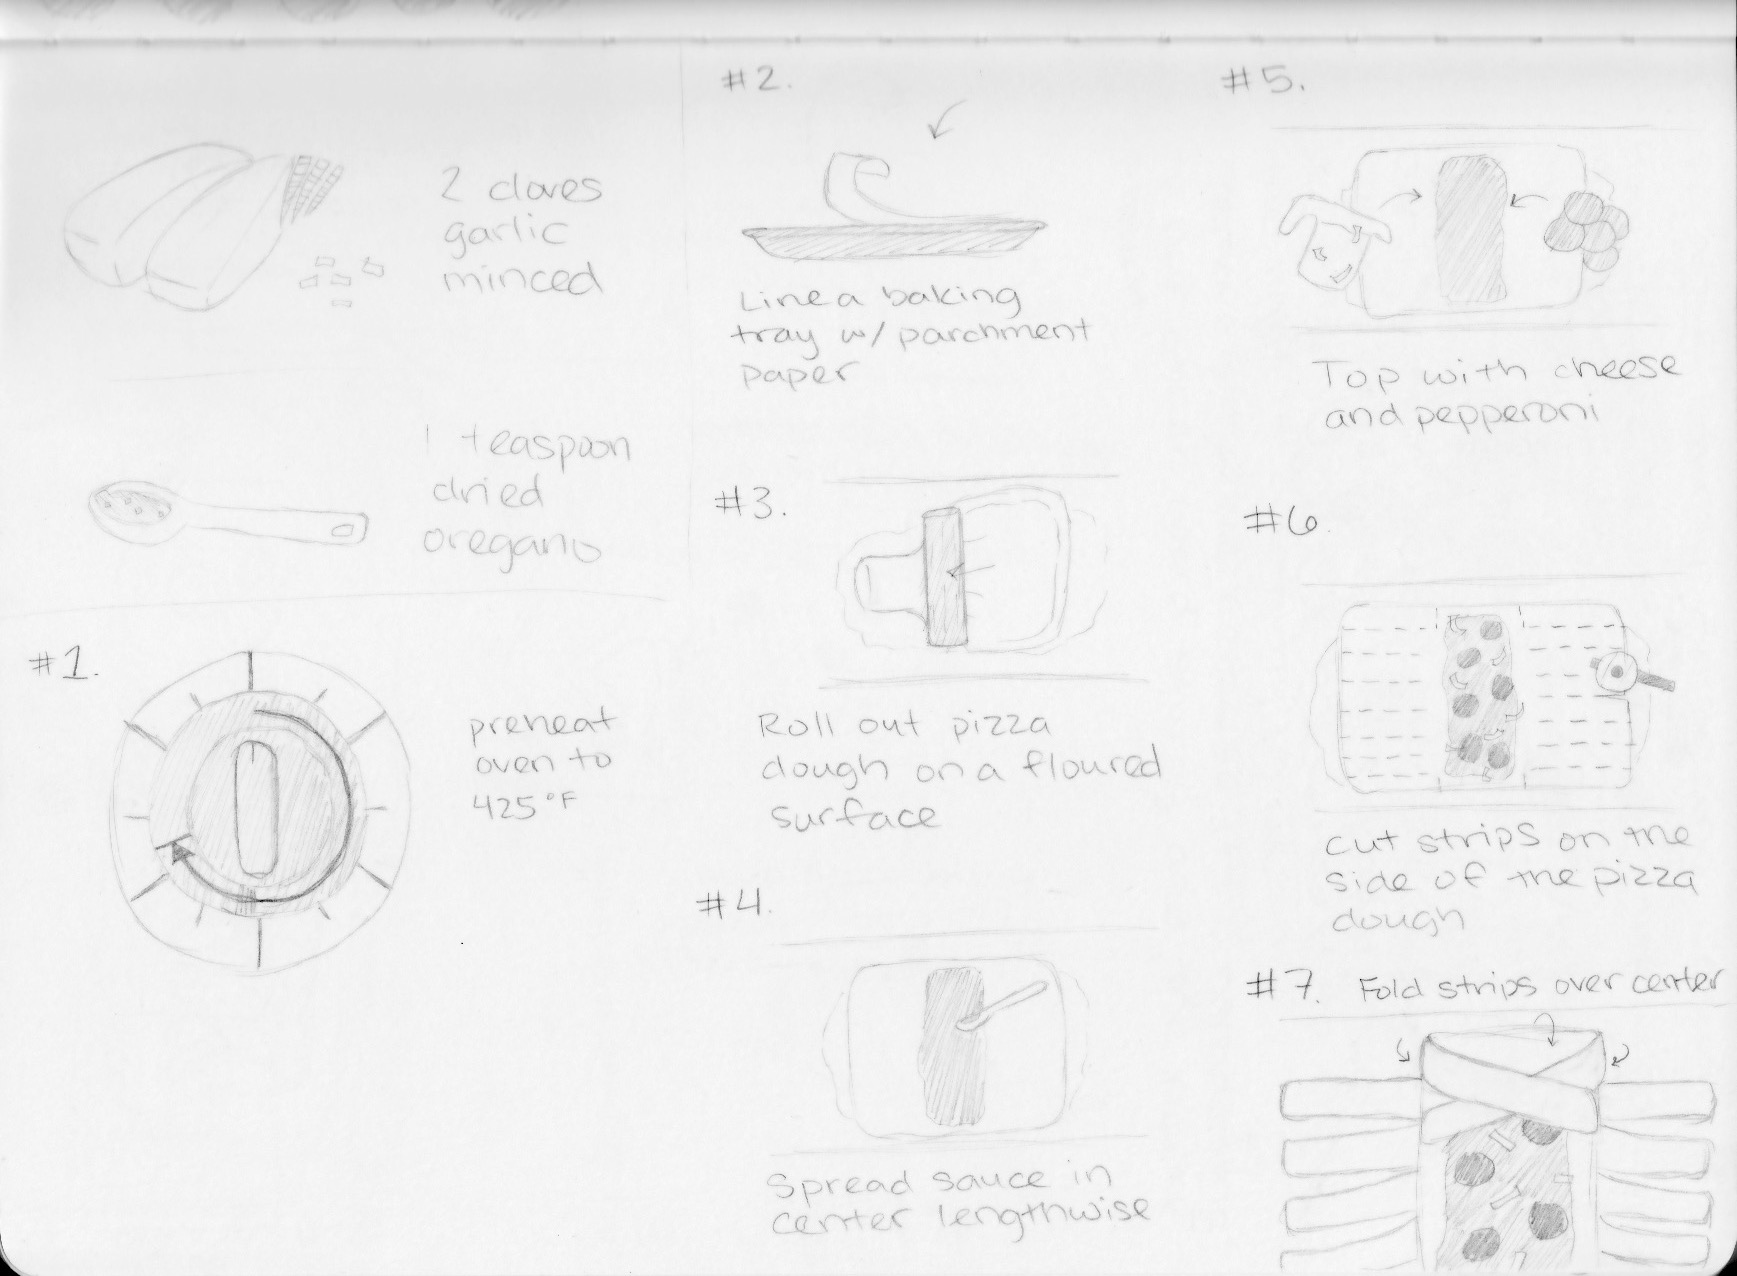 2 cloves
garlic
minced
1 teaspoon
dried
oregano
#1.
preheat
oven to
425°F
#2.
Line a baking
tray w/ parchment
paper
#3.
Roll out pizza
dough on a floured
surface
#4.
Spread sauce in
center lengthwise
#5.
Top with cheese
and pepperoni
#6.
cut strips on the
side of the pizza
dough
#7. Fold strips over center